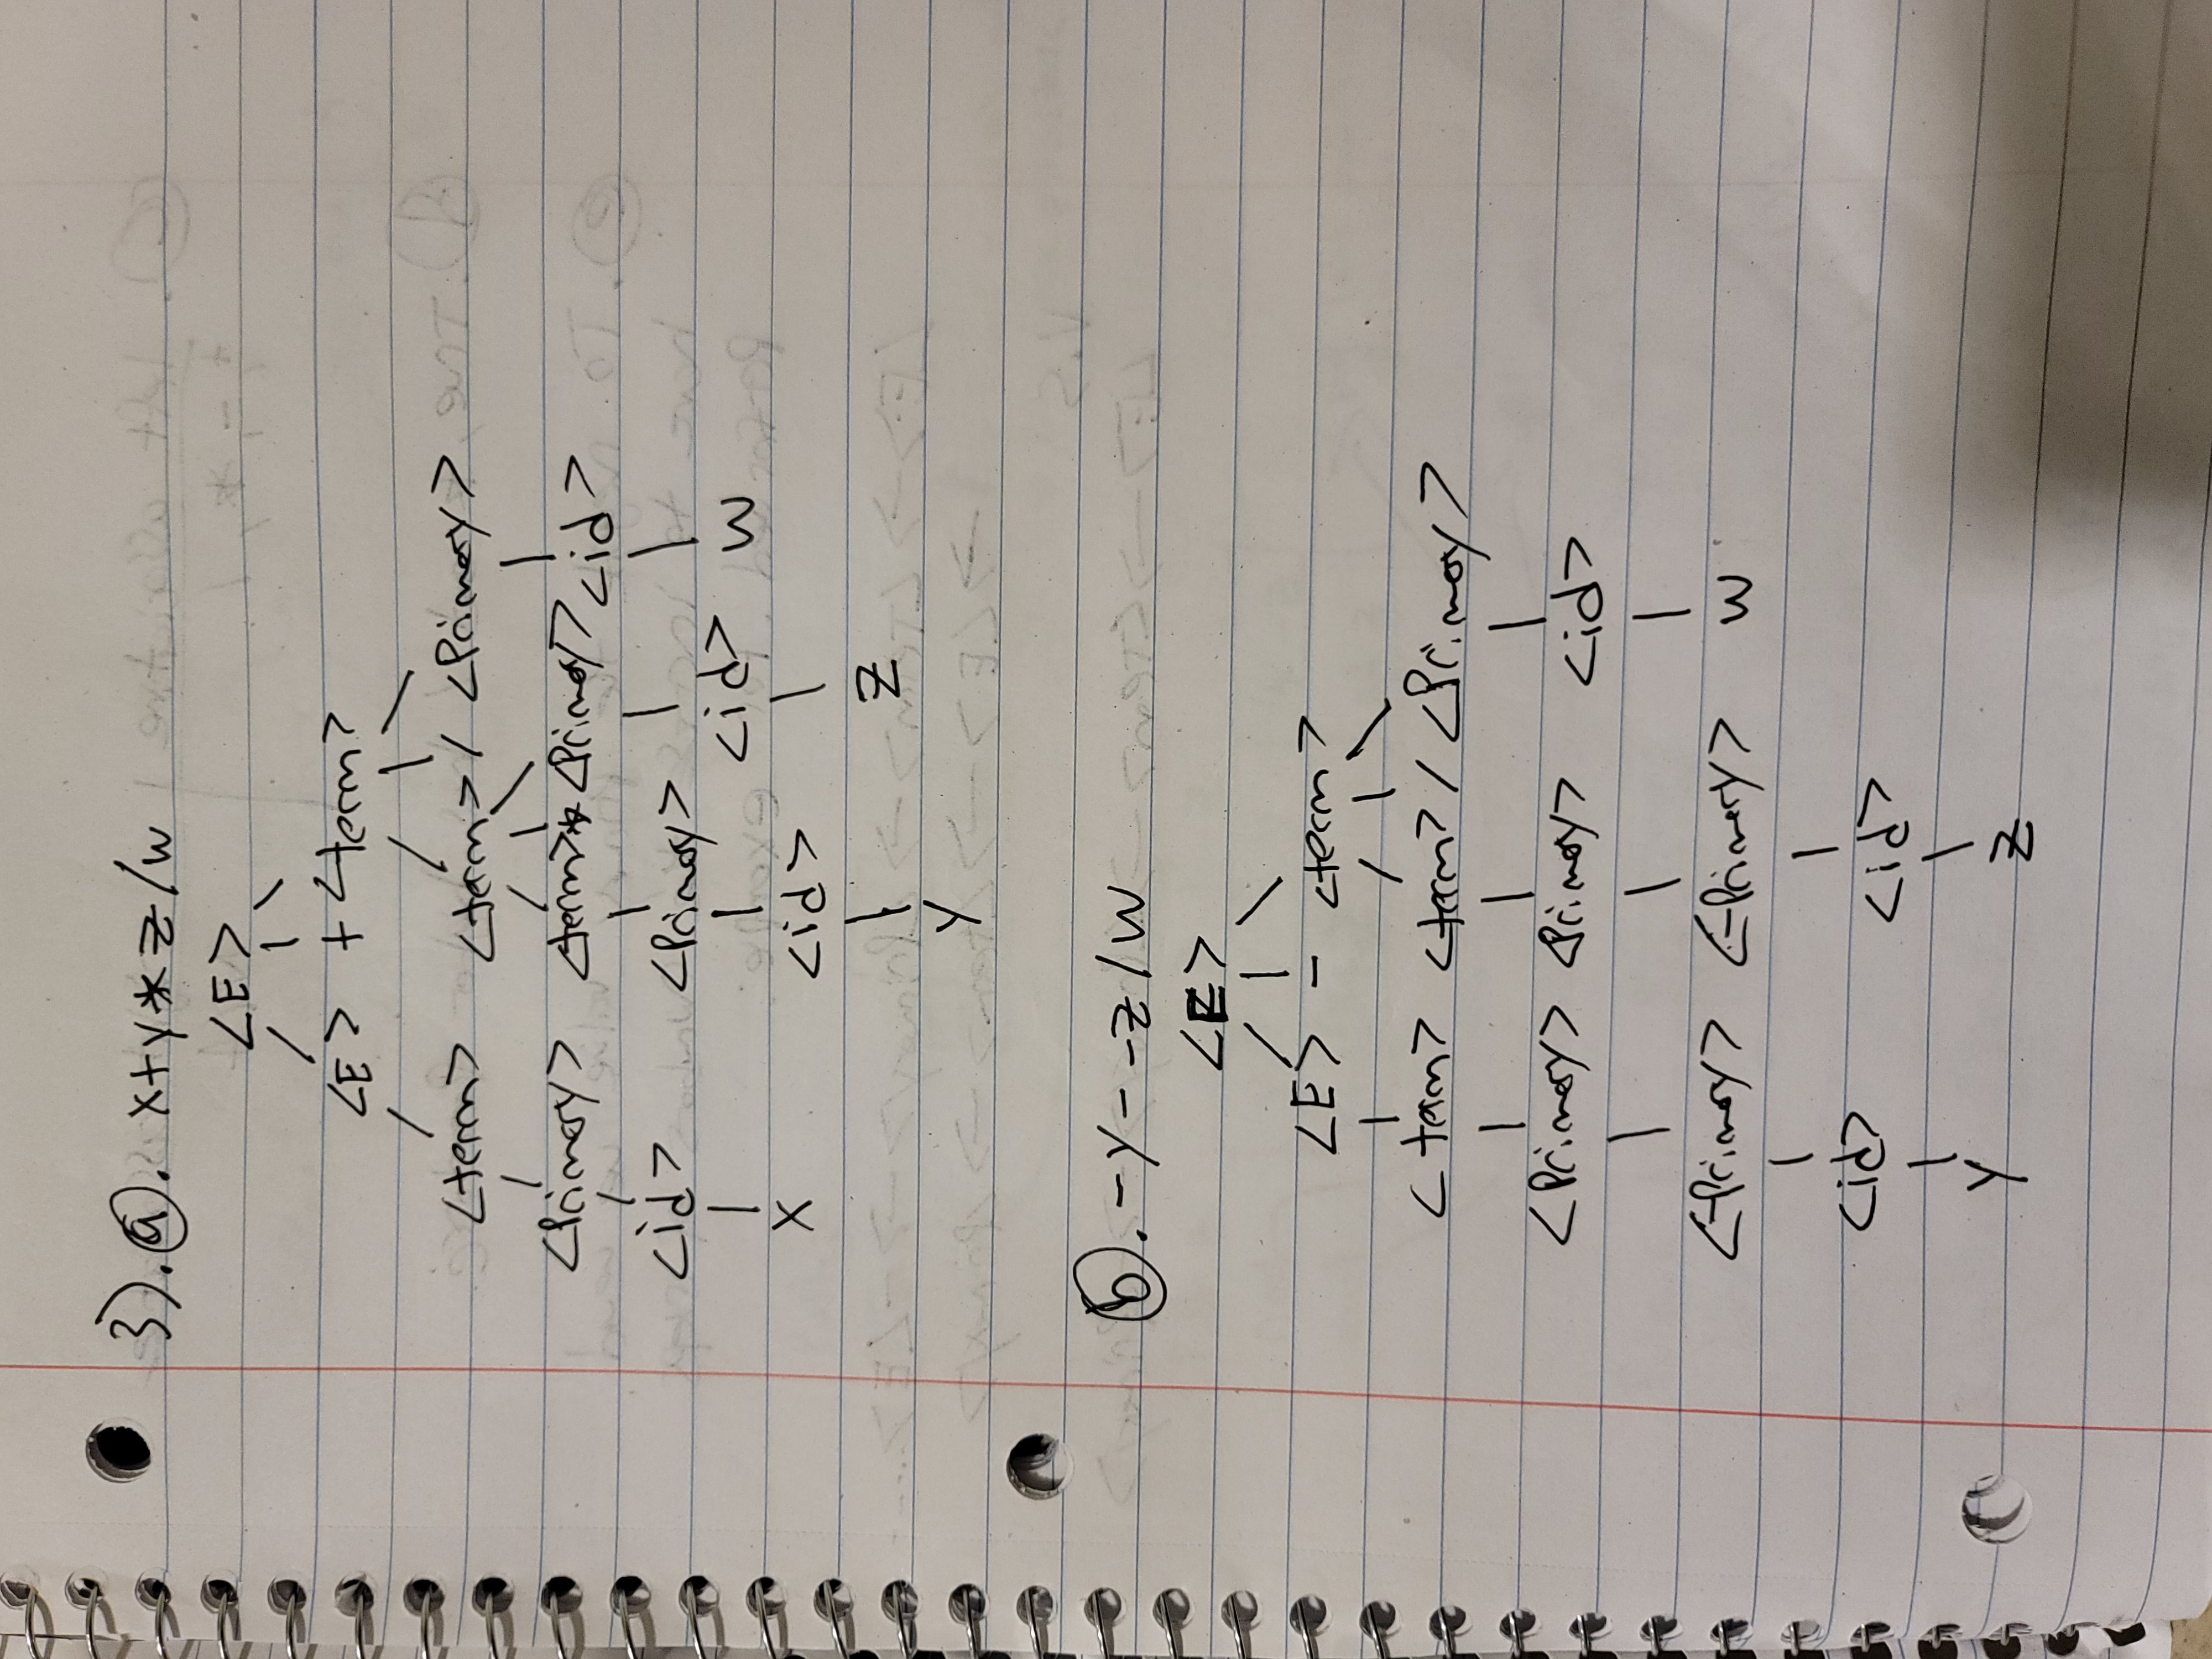 3). a. x+y*z/w
<E>
<E> + <term>
<term> <term> / <Primary>
<Primary> <term>* <Primary> <id>
<id> <Primary> <id> w
x <id> z
y
b. -y--z/w
<E>
<E> - <term>
<term> <term> / <Primary>
<Primary> <Primary> <id>
<-Primary> <-Primary> w
<id> <id>
y z